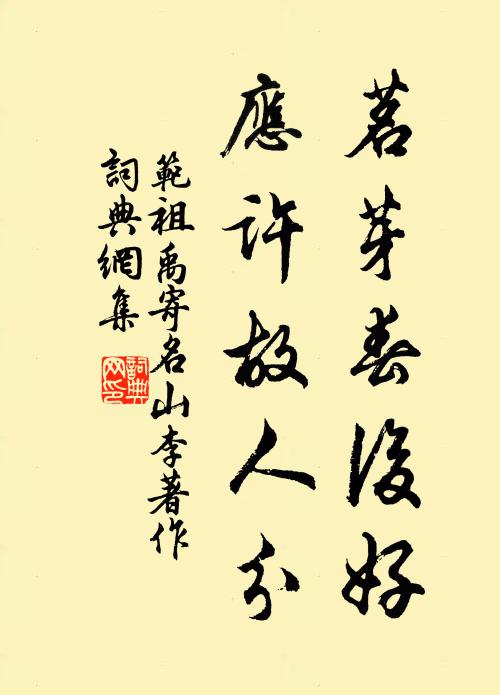 茗芽春後好
應許故人分
範祖禹寄名山李著作
詞典網集
詞典
网印